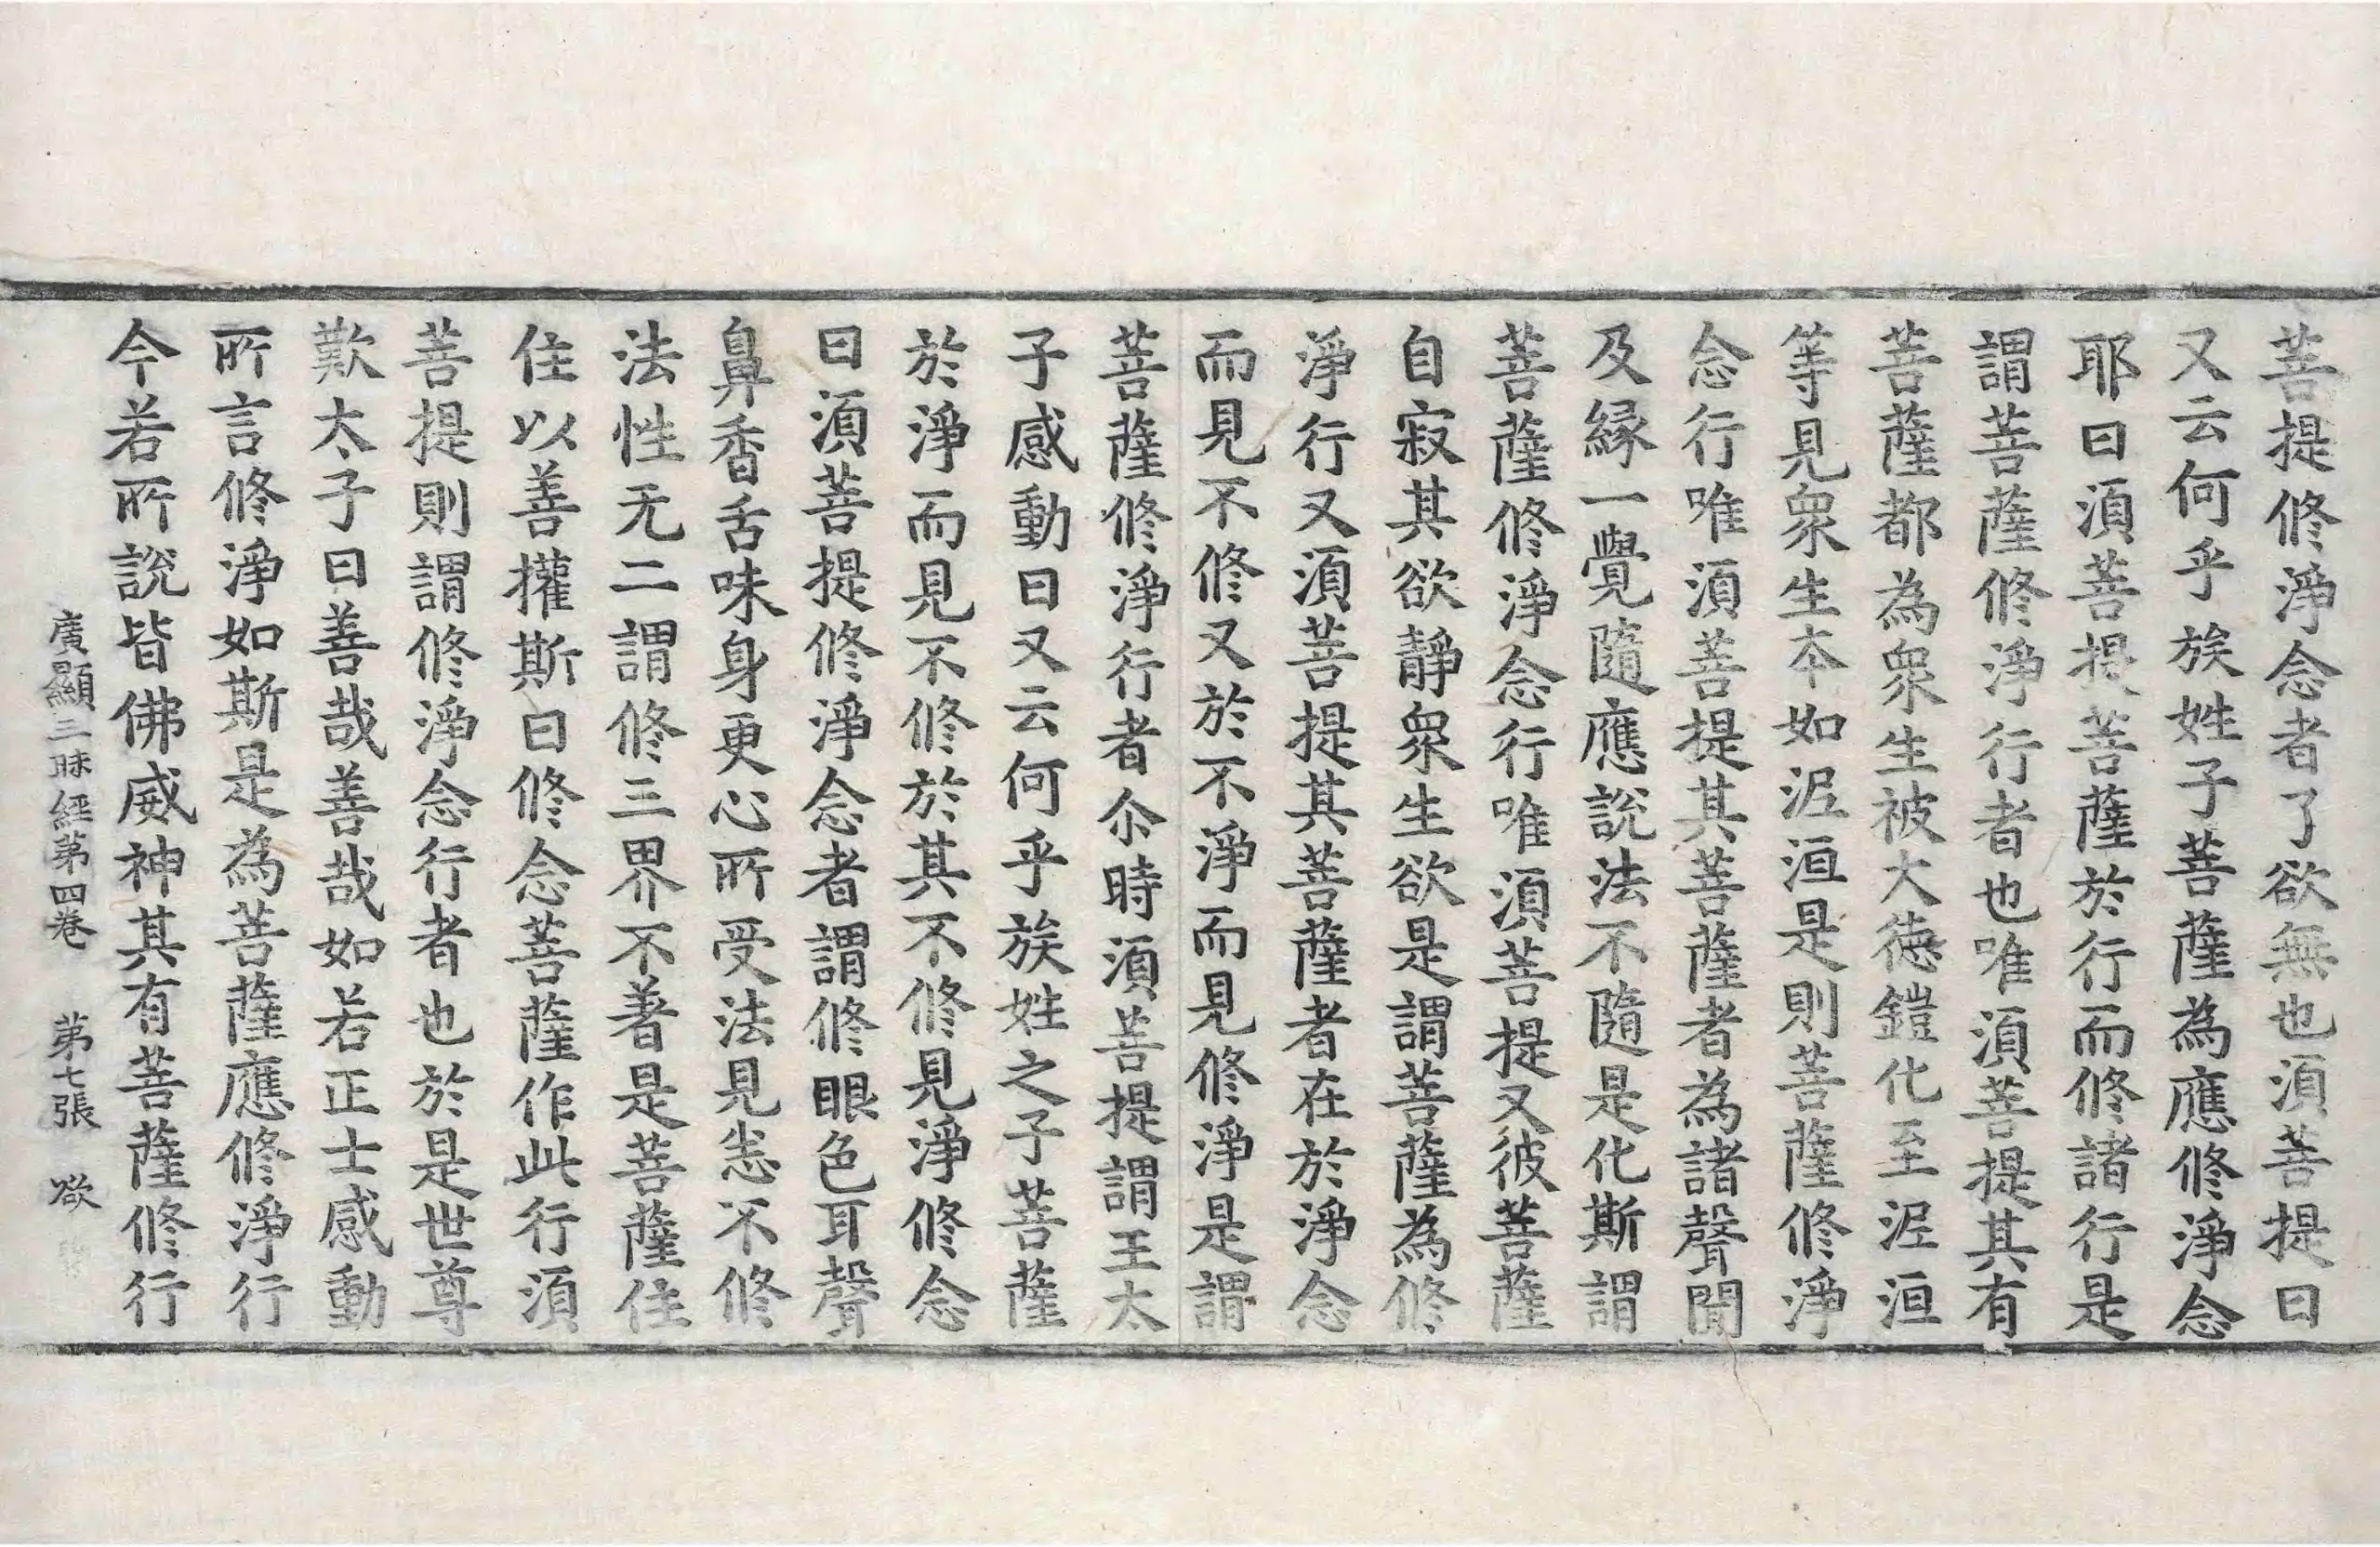 菩提修淨念者了欲無也須菩提曰
又云何乎族姓子菩薩為應修淨念
耶曰須菩提菩薩於行而修諸行是
謂菩薩修淨行者也唯須菩提其有
菩薩都為衆生被大德鎧化至泥洹
等見衆生本如泥洹是則菩薩修淨
念行唯須菩提其菩薩者為諸聲聞
及緣一覺隨應說法不隨是化斯謂
菩薩修淨念行唯須菩提又彼菩薩
自寂其欲靜衆生欲是謂菩薩為修
淨行又須菩提其菩薩者在於淨念
而見不修又於不淨而見修淨是謂
菩薩修淨行者尒時須菩提謂王太
子感動曰又云何乎族姓之子菩薩
於淨而見不修於其不修見淨修念
曰須菩提修淨念者謂修眼色耳聲
鼻香舌味身更心所受法見恙不修
法性无二謂修三界不著是菩薩住
住以善權斯曰修念菩薩作此行須
菩提則謂修淨念行者也於是世尊
歎太子曰善哉善哉如若正士感動
所言修淨如斯是為菩薩應修淨行
今若所說皆佛威神其有菩薩修行
廣顯三昧經第四卷　第七張　欲